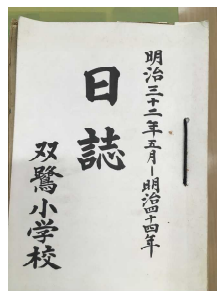 明治三十二年五月－明治四十四年
日誌
双鷺小学校